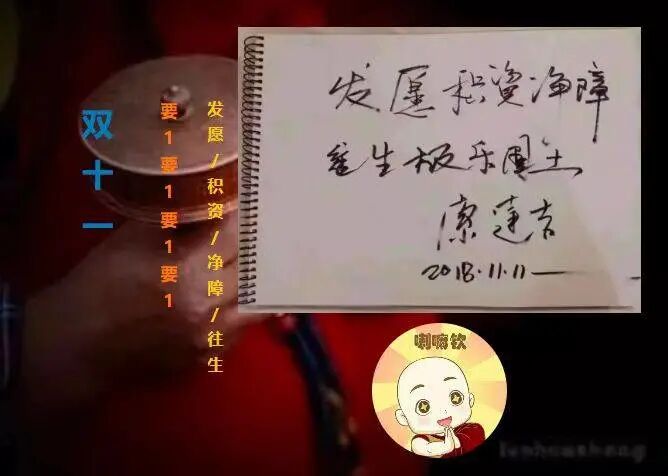 双十一
要1要1要1要1
发愿/积资/净障/往生
发愿积资净障
往生极乐国土
索达吉
2018.11.11
喇嘛钦